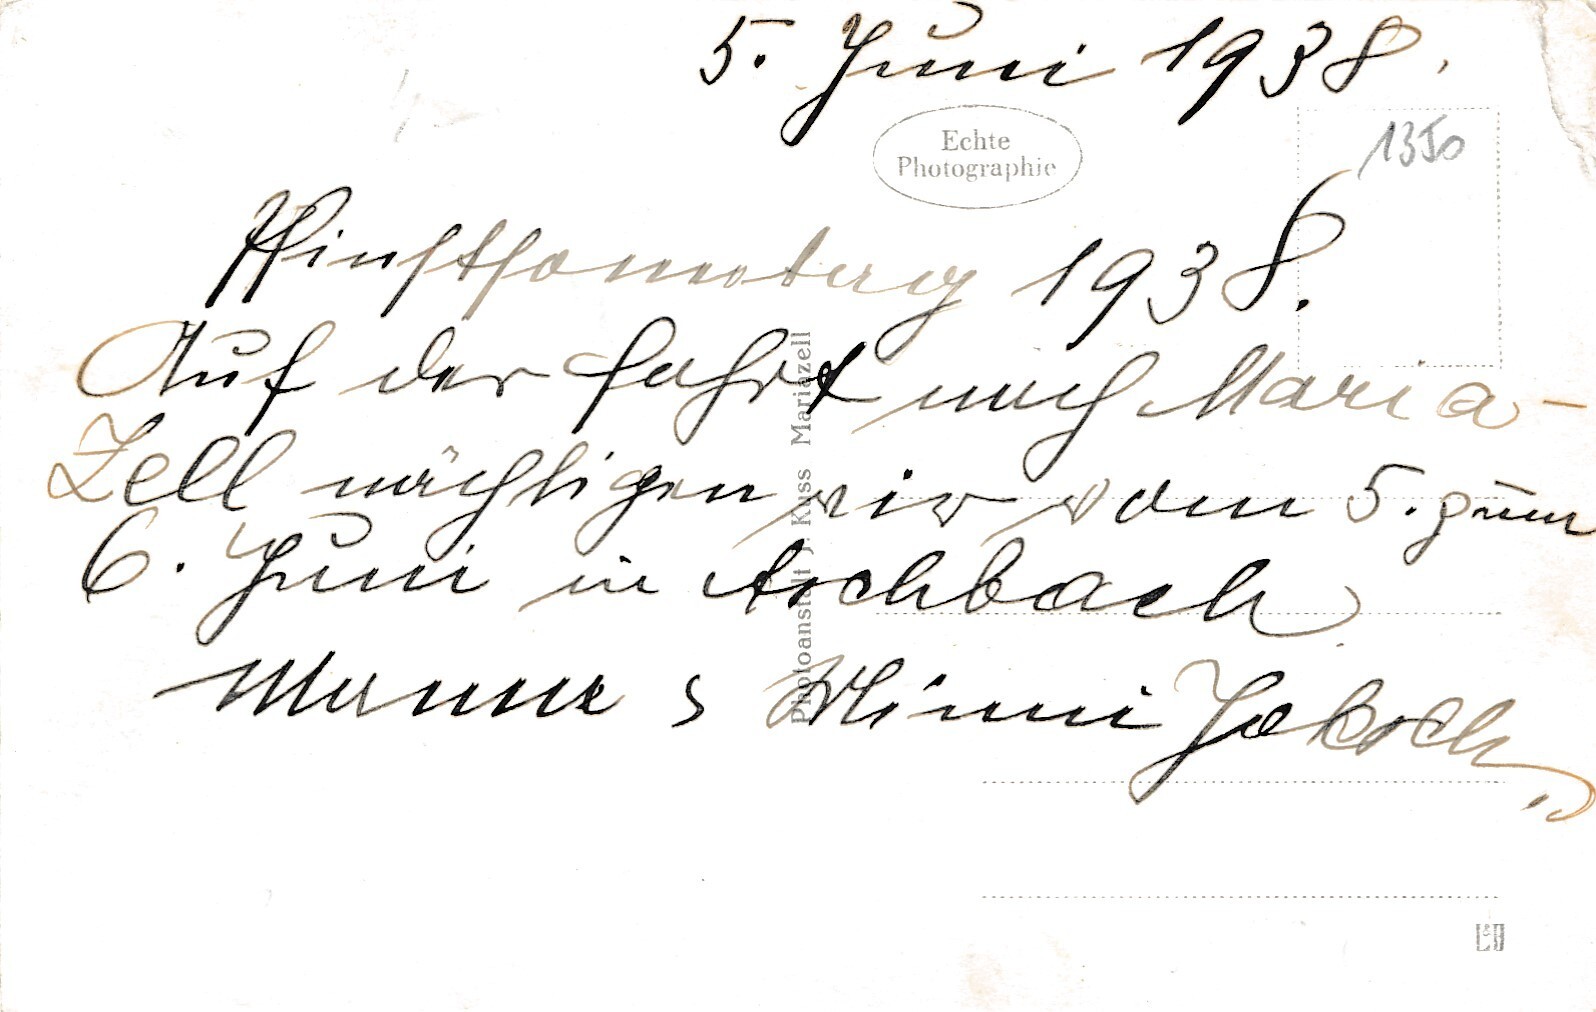 5. Juni 1938.
Echte
Photographie
1350
Pfingstsonntag 1938.
Auf der Fahrt nach Maria-
Zell nächtigen wir vom 5. zum
6. Juni in Aschbach
Minni
Photoanstalt J Kuss Mariazell